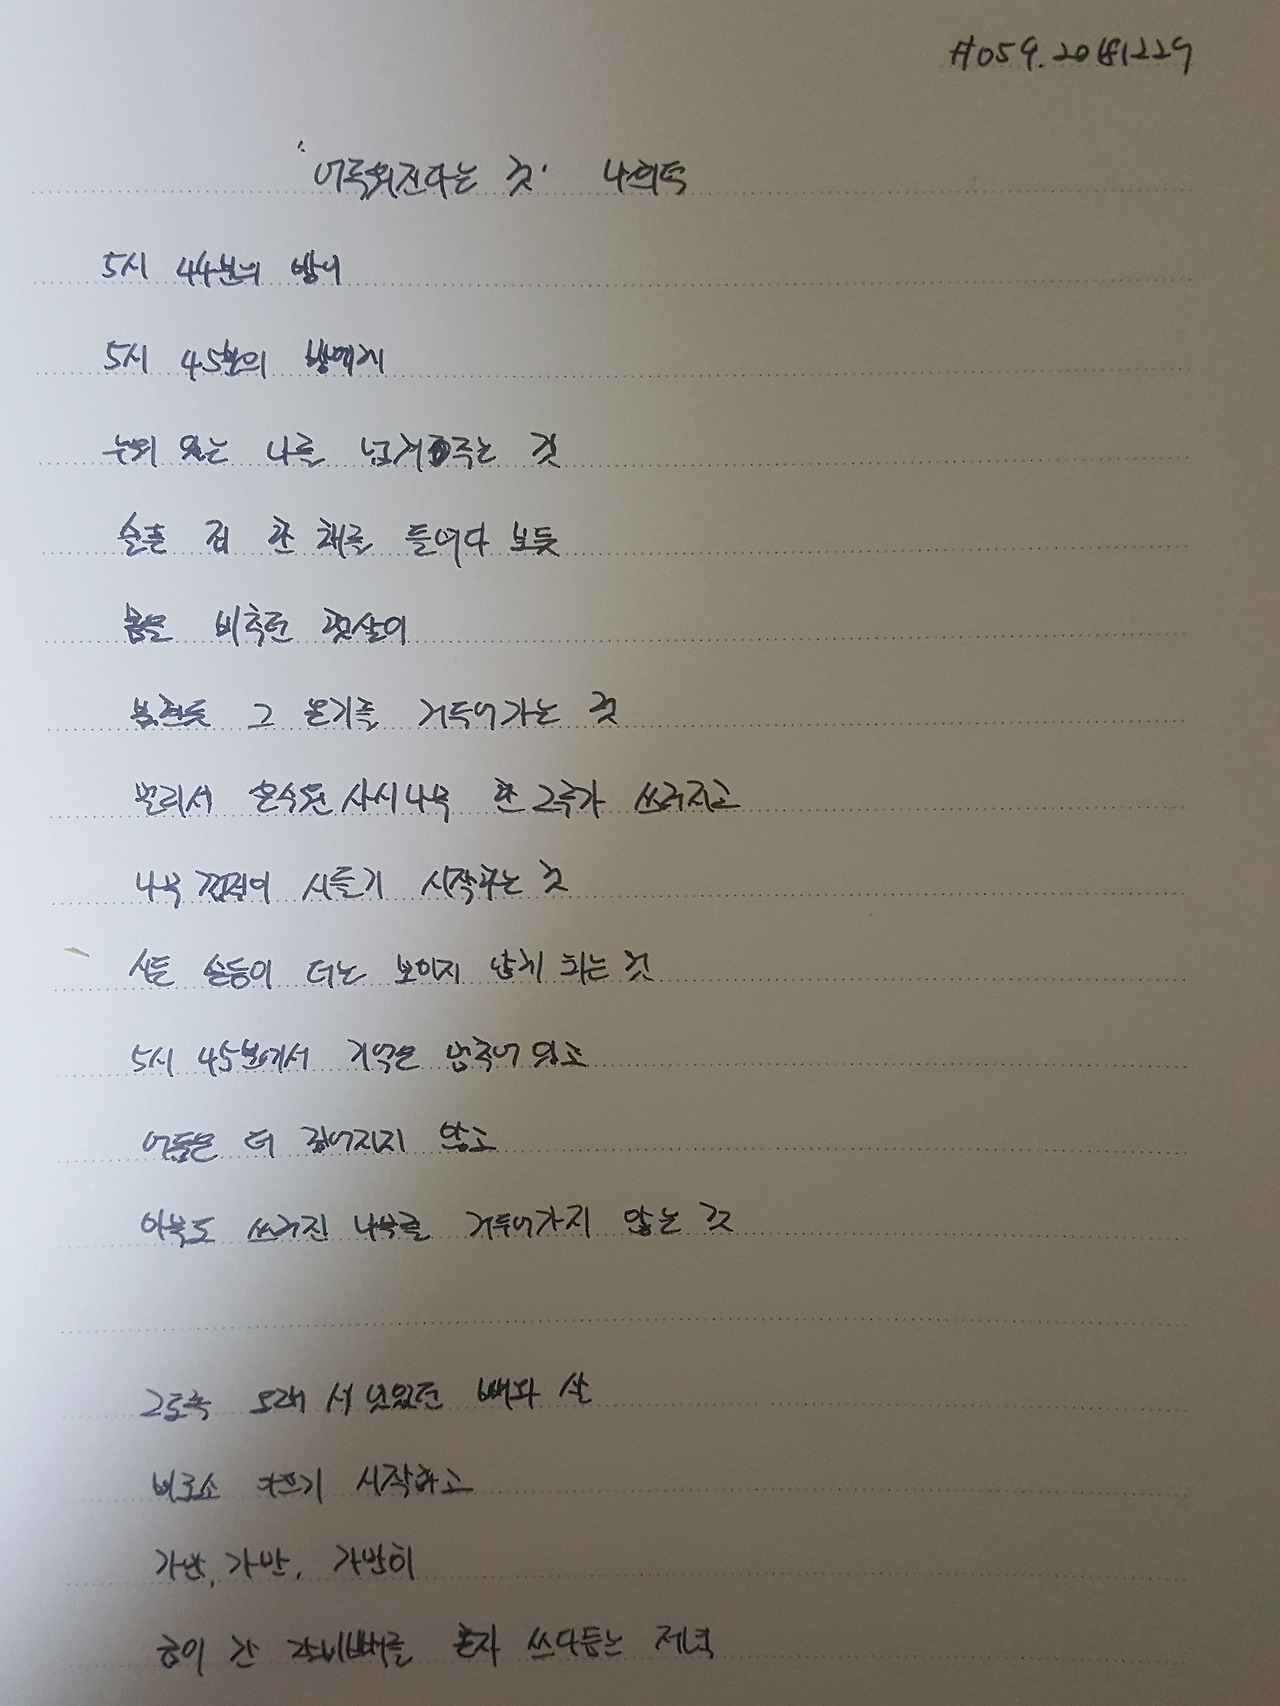 #059. 20181229
'어두워진다는 것' 나희덕
5시 44분의 방이
5시 45분의 방에게
누워 있는 나를 넘겨주는 것
슬픈 집 한 채를 들여다 보듯
몸을 비추던 햇살이
불현듯 그 온기를 거두어가는 것
멀리서 수원은사시나무 한 그루가 쓰러지고
나무 껍질이 시들기 시작하는 것
시든 손등이 더는 보이지 않게 되는 것
5시 45분에서 기억은 멈추어 있고
어둠은 더 깊어지지 않고
아무도 쓰러진 나무를 거두어가지 않는 것
그토록 오래 서 있었던 뼈와 살
비로소 아프기 시작하고
가만, 가만, 가만히
금이 간 갈비뼈를 혼자 쓰다듬는 저녁